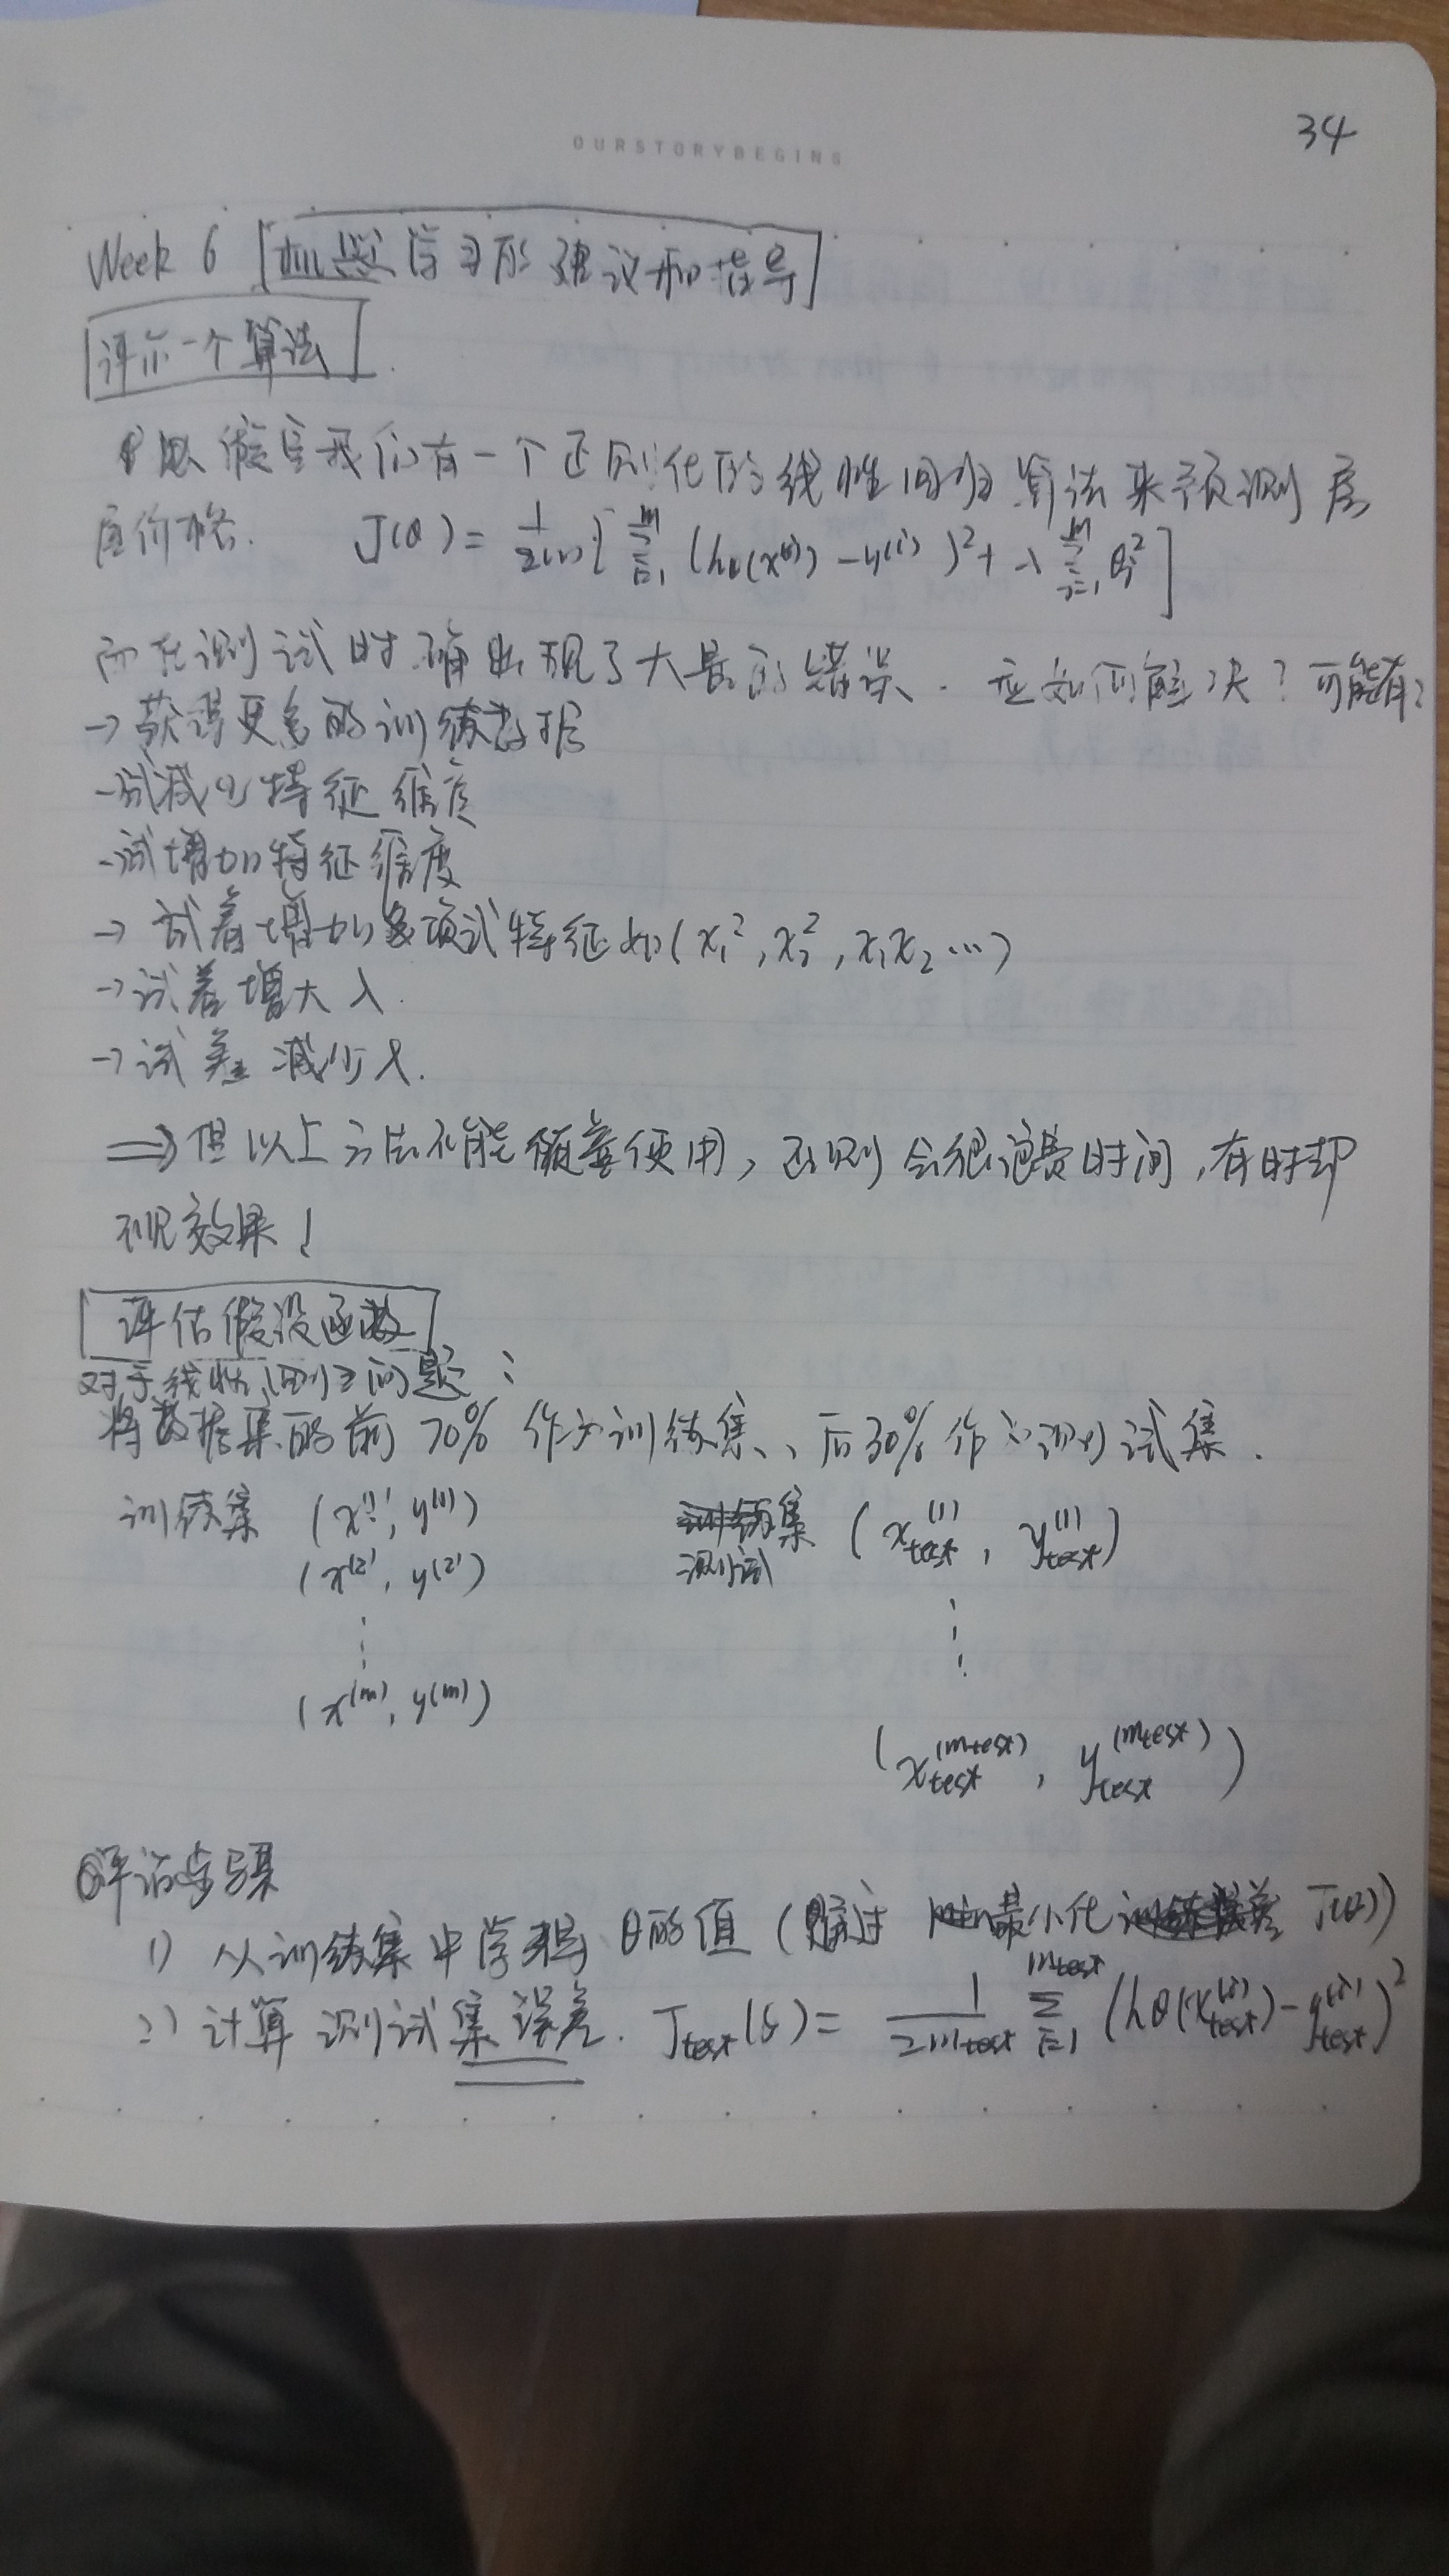 34
OURSTORYBEGINS
Week 6 机器学习的建议和指导
评价一个算法
假定我们有一个正则化的线性回归算法来预测房
屋价格. J(θ) = 1/2m [ m Σ i=1 (hθ(x⁽ⁱ⁾) - y⁽ⁱ⁾)² + λ m Σ j=1 θj² ]
而在测试时确出现了大量的错误. 应如何解决?可能有:
→ 获得更多的训练数据
- 试减少特征维度
- 试增加特征维度
→ 试着增加多项式特征如(x₁², x₂², x₁x₂ …)
→ 试着增大 λ.
→ 试着减少 λ.
⇒ 但以上方法不能随意使用, 否则会很浪费时间, 有时却
不见效果!
评估假设函数
对于线性回归问题:
将数据集的前 70% 作为训练集, 后30% 作为测试集.
训练集 (x⁽¹⁾, y⁽¹⁾) 测试集 (x_test⁽¹⁾, y_test⁽¹⁾)
(x⁽²⁾, y⁽²⁾)
⋮ ⋮
(x⁽ᵐ⁾, y⁽ᵐ⁾)
(x_test^(m_test), y_test^(m_test))
评估步骤
1) 从训练集中学习 θ的值 (通过 最小化 J(θ))
2) 计算测试集误差. J_test(θ) = 1/2m_test m_test Σ i=1 (hθ(x_test⁽ⁱ⁾) - y_test⁽ⁱ⁾)²